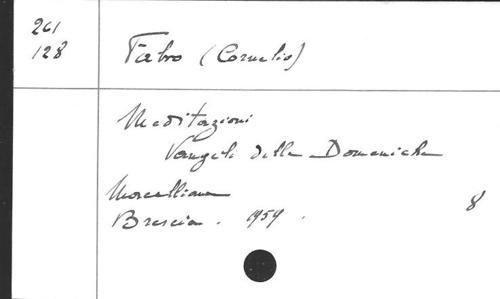 261
128
Fabro (Cornelio)
Meditazioni
Vangeli delle Domeniche
Morcelliana
Brescia . 1959 .
8